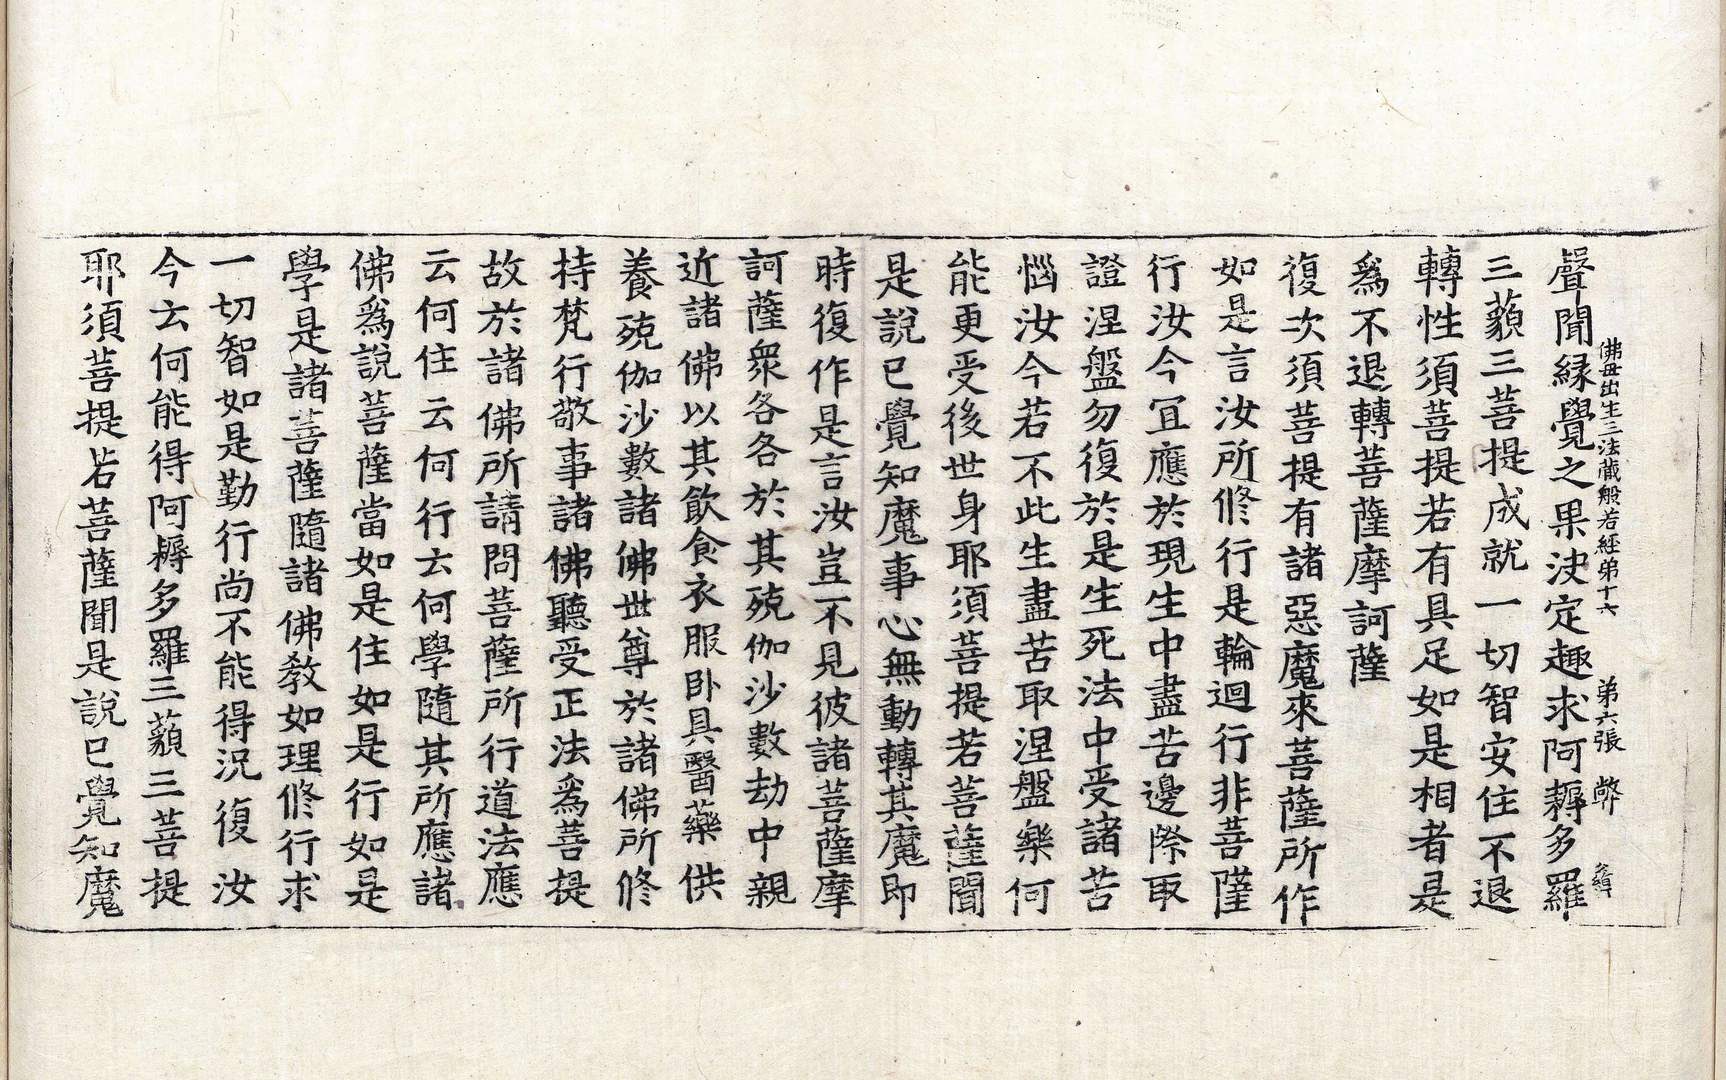 佛毋出生三法藏般若經弟十六 弟六張 弊
聲聞緣覺之果決定趣求阿耨多羅
三藐三菩提成就一切智安住不退
轉性須菩提若有具足如是相者是
爲不退轉菩薩摩訶薩
復次須菩提有諸惡魔來菩薩所作
如是言汝所修行是輪迴行非菩薩
行汝今冝應於現生中盡苦邊際取
證涅盤勿復於是生死法中受諸苦
惱汝今若不此生盡苦取涅盤樂何
能更受後世身耶須菩提若菩薩聞
是說已覺知魔事心無動轉其魔即
時復作是言汝豈不見彼諸菩薩摩
訶薩衆各各於其殑伽沙數劫中親
近諸佛以其飮食衣服卧具醫藥供
養殑伽沙數諸佛世尊於諸佛所修
持梵行敬事諸佛聽受正法爲菩提
故於諸佛所請問菩薩所行道法應
云何住云何行云何學隨其所應諸
佛爲說菩薩當如是住如是行如是
學是諸菩薩隨諸佛教如理修行求
一切智如是勤行尚不能得況復汝
今云何能得阿耨多羅三藐三菩提
耶須菩提若菩薩聞是說已覺知魔